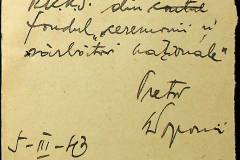 din contul
fondul „ceremonii și
sărbători naționale"
Pretor
5-III-43